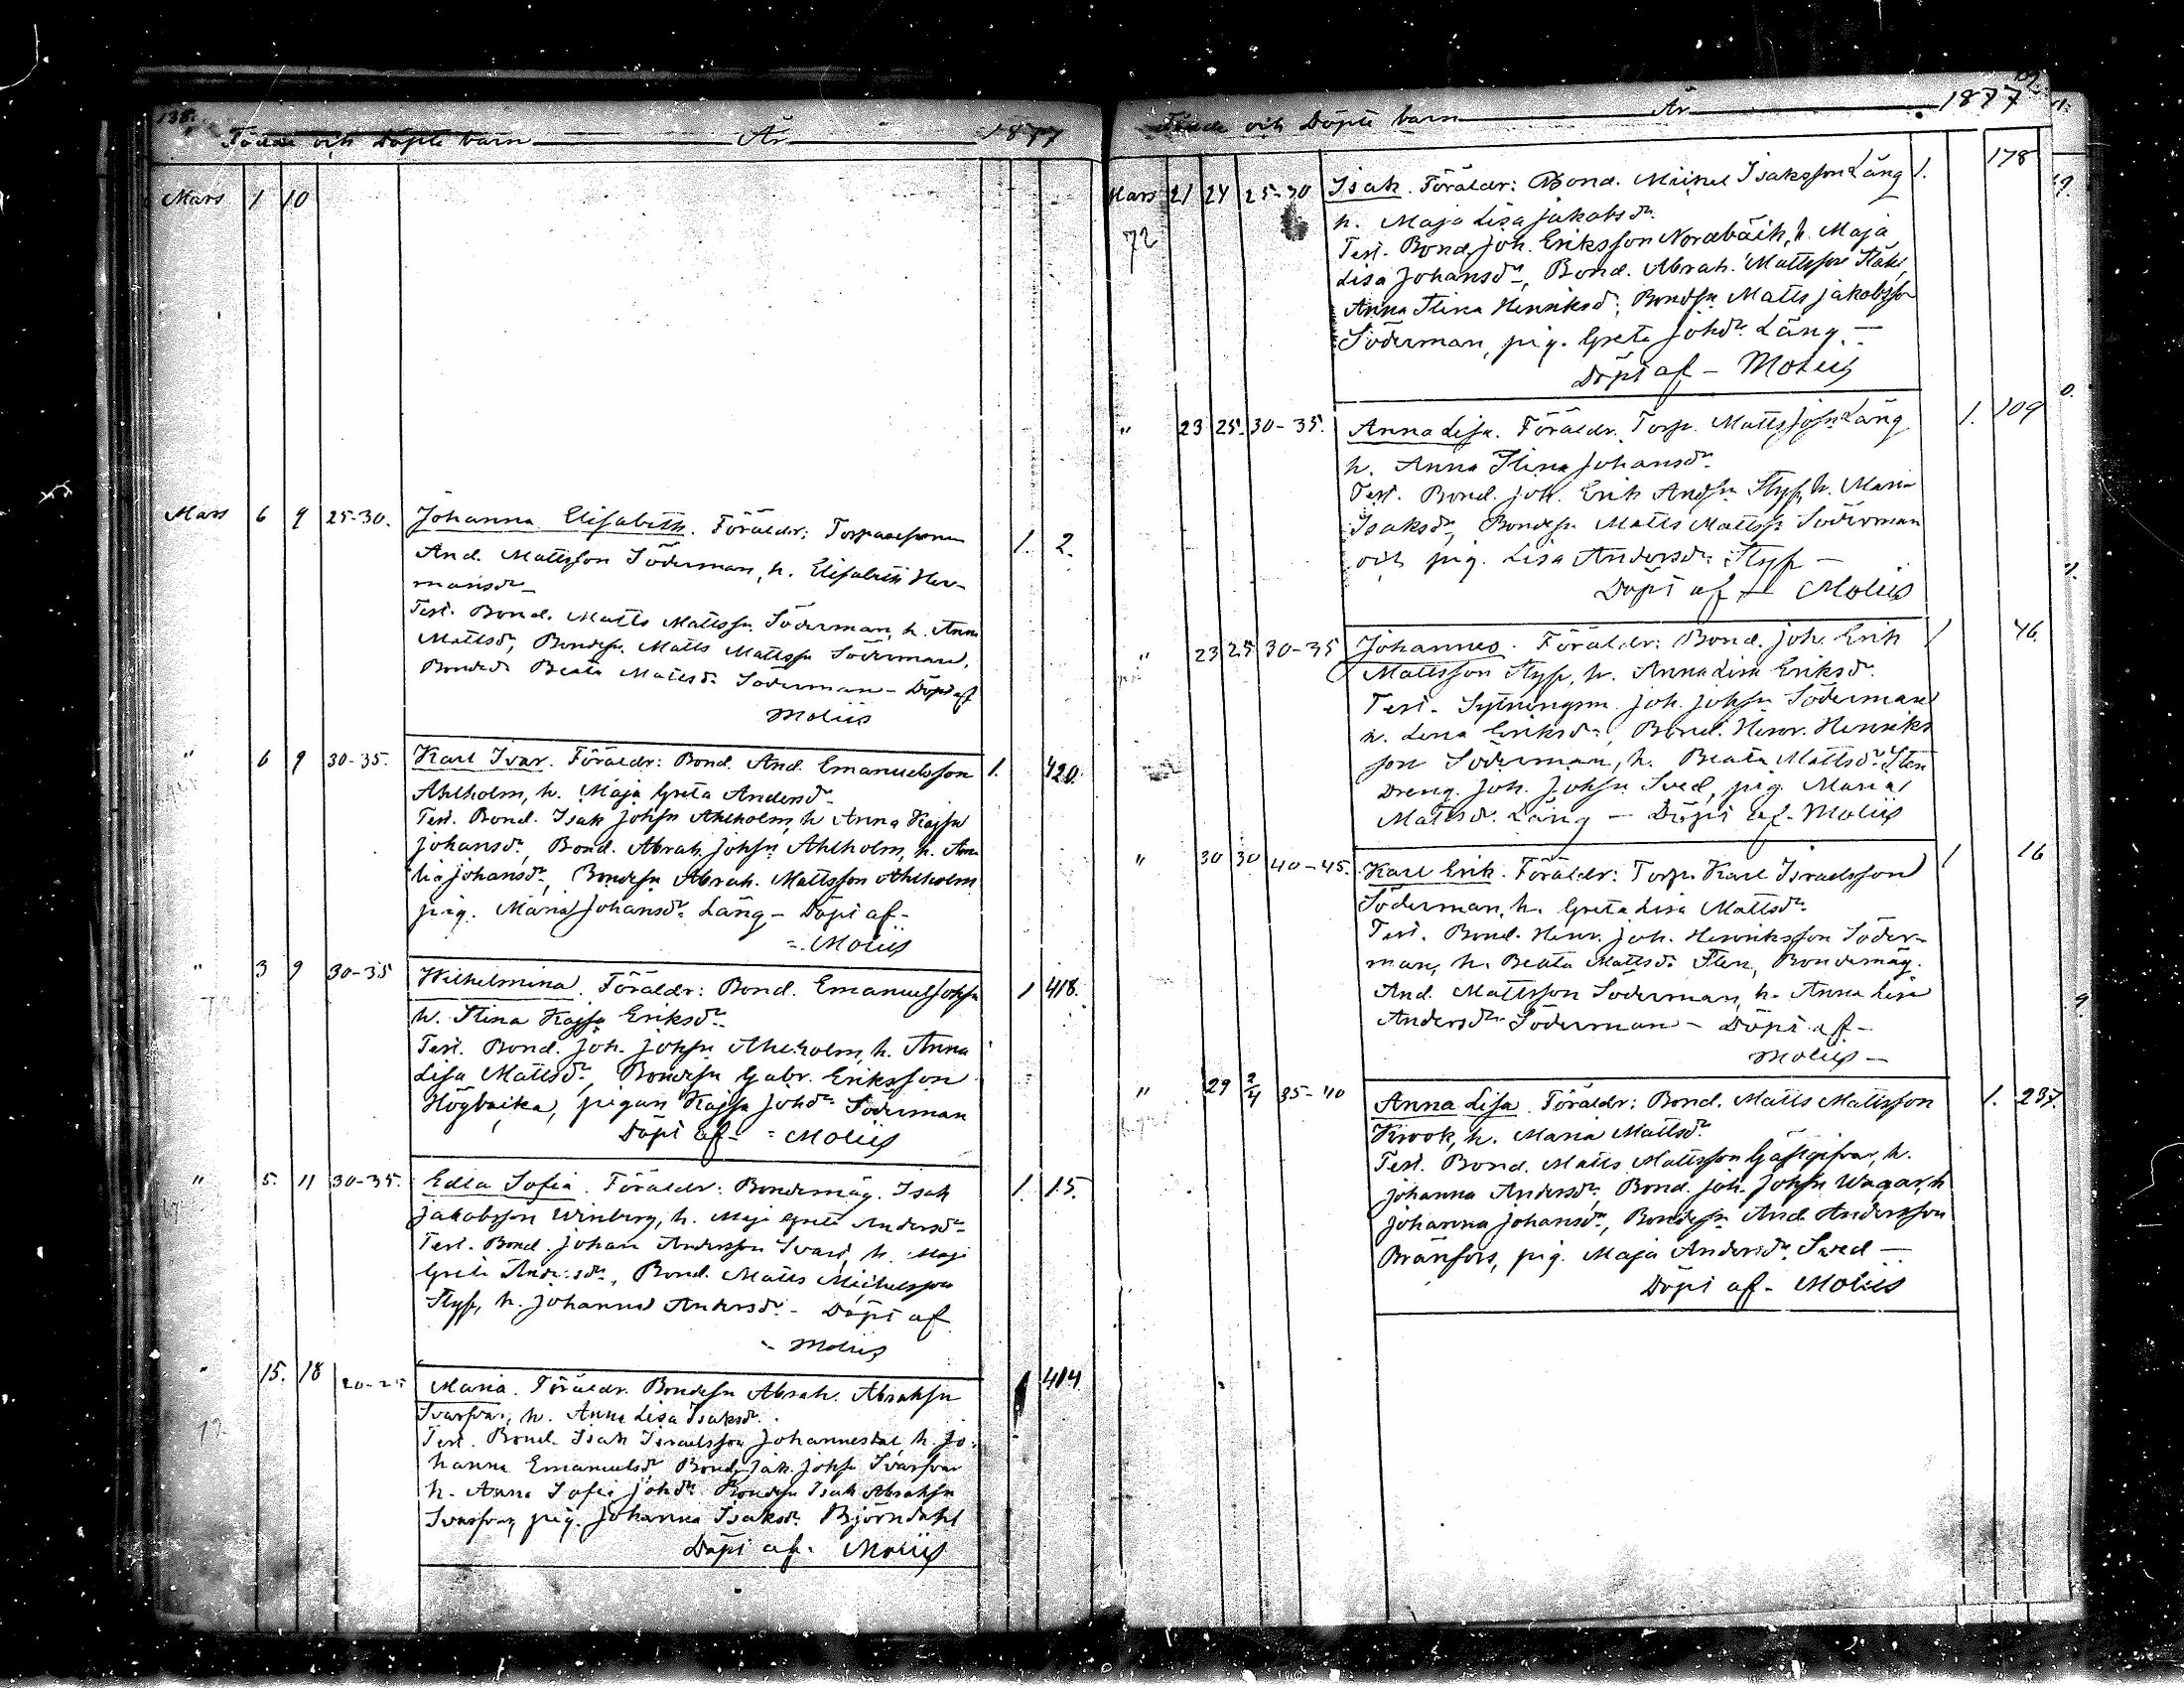 138.
Födde och Döpte barn År 1877
Mars 1 10
Mars 6 9 25-30. Johanna Elisabeth. Föräldr: Torparesonen 1. 2.
And. Mattsson Söderman, h. Elisabeth Her-
mansdr
Test. Bond. Matts Mattssn Söderman, h. Anna
Mattsdr, Bondesn. Matts Mattssn Söderman,
Bonded. Beata Mattsdr Söderman - Döpt af
Moliis
" 6 9 30-35. Karl Ivar. Föräldr: Bond. And. Emanuelsson 1. 420.
Ahlholm, h. Maja Greta Andersdr
Test. Bond. Isak Johsn Ahlholm, h Anna Kajsa
Johansdr, Bond. Abrah. Johsn Ahlholm, h.
Johansdr, Bondesn Abrah. Mattsson Ahlholm
pig. Maria Johansdr Läng - Döpt af -
Moliis
" 3 9 30-35 Wilhelmina. Föräldr: Bond. Emanuel Johsn 1 418.
h. Stina Kajsa Eriksdr
Test. Bond. Joh. Johsn Ahlholm, h. Anna
Lisa Mattsdr, Bondesn Gabr. Eriksson
Högbacka, pigan Kajsa Johdr Söderman
Döpt af - Moliis
" 5. 11 30-35. Edla Sofia. Föräldr: Bondemåg. Isak 1. 15.
Jakobsson Winberg, h. Maja Greta Andersdr
Test. Bond. Johan Andersson Svard, h. Maja
Greta Andersdr, Bond. Matts Michelsson
Styf, h. Johanna Andersdr - Döpt af
- Moliis
15. 18 20-25 Maria. Föräldr. Bondesn Abrah. Abrahsn 1 414.
Svarfvar, h. Anna Lisa Isaksdr.
Test. Bond. Isak Israelsson Johannesdal, h. Jo-
hanna Emanuelsdr Bond. Jak. Johsn Svarfvar
h. Anna Sofia Johdr Bondesn Isak Abrahsn
Svarfvar, pig. Johanna Isaksdr Björndahl
Döpt af. Moliis
Födde och Döpte barn År 1877
Mars 21 24 25-30 Isak. Föräldr: Bond. Michel Isaksson Läng 1. 178
72
h. Maja Lisa Jakobsdr
Test. Bond. Joh. Eriksson Nordbäck, h. Maja
Lisa Johansdr, Bond. Abrah. Mattsson
Anna Stina Henriksdr, Bondsn Matts Jakobsson
Söderman, pig. Greta Johdr Läng -
Döpt af - Moliis
" 23 25. 30-35. Anna Lisa. Föräldr. Torp. Matts Johsn Läng 1. 109
h. Anna Stina Johansdr
Test. Bond. Joh. Erik Andsn Styf, h. Maria
Isaksdr, Bondesn Matts Mattssn Söderman
och pig. Lisa Andersdr Styf -
Döpt af - Moliis
" 23 25 30-35 Johannes. Föräldr: Bond. Joh. Erik 1 46.
Mattsson Styf, h. Anna Lisa Eriksdr
Test. Sytningsm. Joh. Johsn Söderman
h. Lena Eriksdr, Bond. Henr. Henriks
son Söderman, h. Beata Mattsdr Sten
Dreng. Joh. Johsn Sved, pig. Maria
Mattsdr. Läng - Döpt af - Moliis
" 30 30 40-45. Karl Erik. Föräldr: Torp. Karl Israelsson 1 16
Söderman, h. Greta Lisa Mattsdr
Test. Bond. Henr. Joh. Henriksson Söder-
man, h. Beata Mattsdr Sten, Bondemåg.
And. Mattsson Söderman, h. Anna Lisa
Andersdr Söderman - Döpt af -
Moliis -
" 29 2/4 35-40 Anna Lisa. Föräldr: Bond. Matts Mattsson 1. 237.
Krook, h. Maria Mattsdr
Test. Bond. Matts Mattsson Gästgifvar, h.
Johanna Andersdr, Bond. Joh. Johsn Wagar, h
Johanna Johansdr, Bondesn And. Andersson
Bränfors, pig. Maja Andersdr Sved -
Döpt af - Moliis